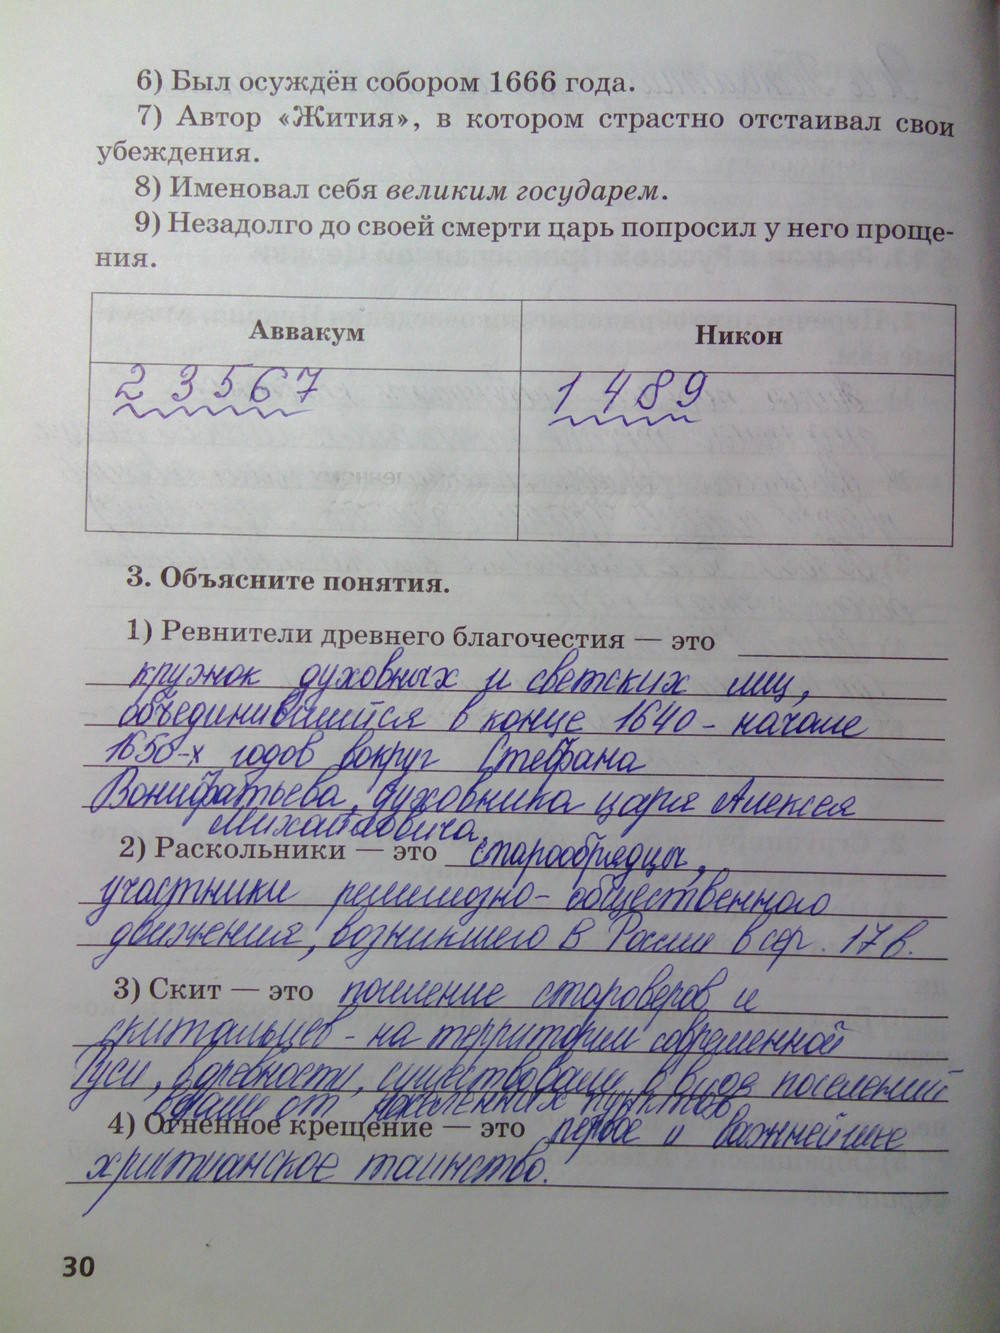 6) Был осуждён собором 1666 года.
7) Автор «Жития», в котором страстно отстаивал свои
убеждения.
8) Именовал себя великим государем.
9) Незадолго до своей смерти царь попросил у него проще-
ния.
Аввакум
Никон
2 3 5 6 7
1 4 8 9
3. Объясните понятия.
1) Ревнители древнего благочестия — это
кружок духовных и светских лиц,
объединившийся в конце 1640 - начале
1650-х годов вокруг Стефана
Вонифатьева, духовника царя Алексея
Михайловича.
2) Раскольники — это старообрядцы,
участники религиозно-общественного
движения, возникшего в России в сер. 17 в.
3) Скит — это поселение староверов и
скитальцев - на территории современной
Руси, в древности, существовали в виде поселений
вдали от населенных пунктов
4) Огненное крещение — это первое и важнейшее
христианское таинство.
30